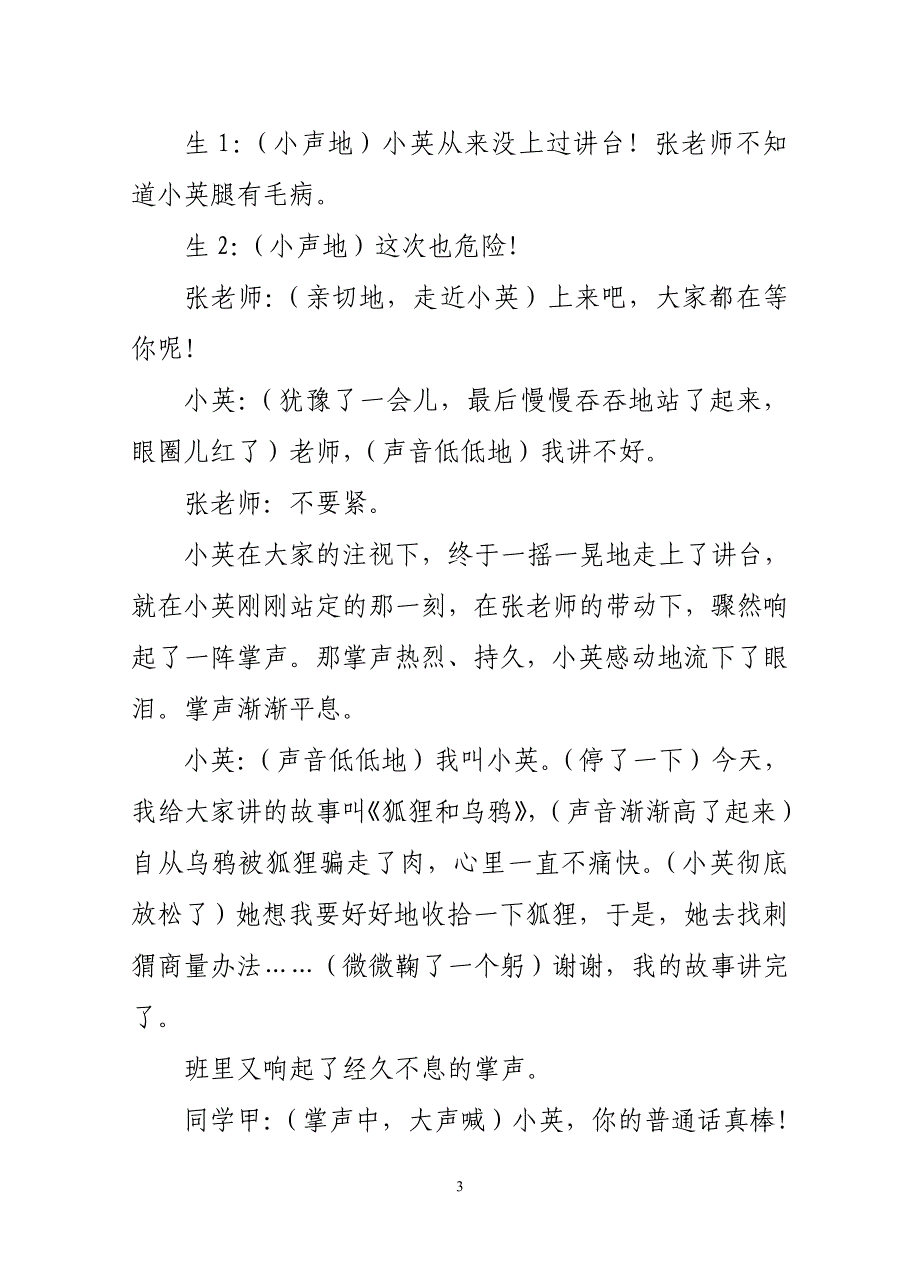 生 1：（小声地）小英从来没上过讲台！张老师不知
道小英腿有毛病。
生 2：（小声地）这次也危险！
张老师：（亲切地，走近小英）上来吧，大家都在等
你呢！
小英：（犹豫了一会儿，最后慢慢吞吞地站了起来，
眼圈儿红了）老师，（声音低低地）我讲不好。
张老师：不要紧。
小英在大家的注视下，终于一摇一晃地走上了讲台，
就在小英刚刚站定的那一刻，在张老师的带动下，骤然响
起了一阵掌声。那掌声热烈、持久，小英感动地流下了眼
泪。掌声渐渐平息。
小英：（声音低低地）我叫小英。（停了一下）今天，
我给大家讲的故事叫《狐狸和乌鸦》，（声音渐渐高了起来）
自从乌鸦被狐狸骗走了肉，心里一直不痛快。（小英彻底
放松了）她想我要好好地收拾一下狐狸，于是，她去找刺
猬商量办法……（微微鞠了一个躬）谢谢，我的故事讲完
了。
班里又响起了经久不息的掌声。
同学甲：（掌声中，大声喊）小英，你的普通话真棒！
3